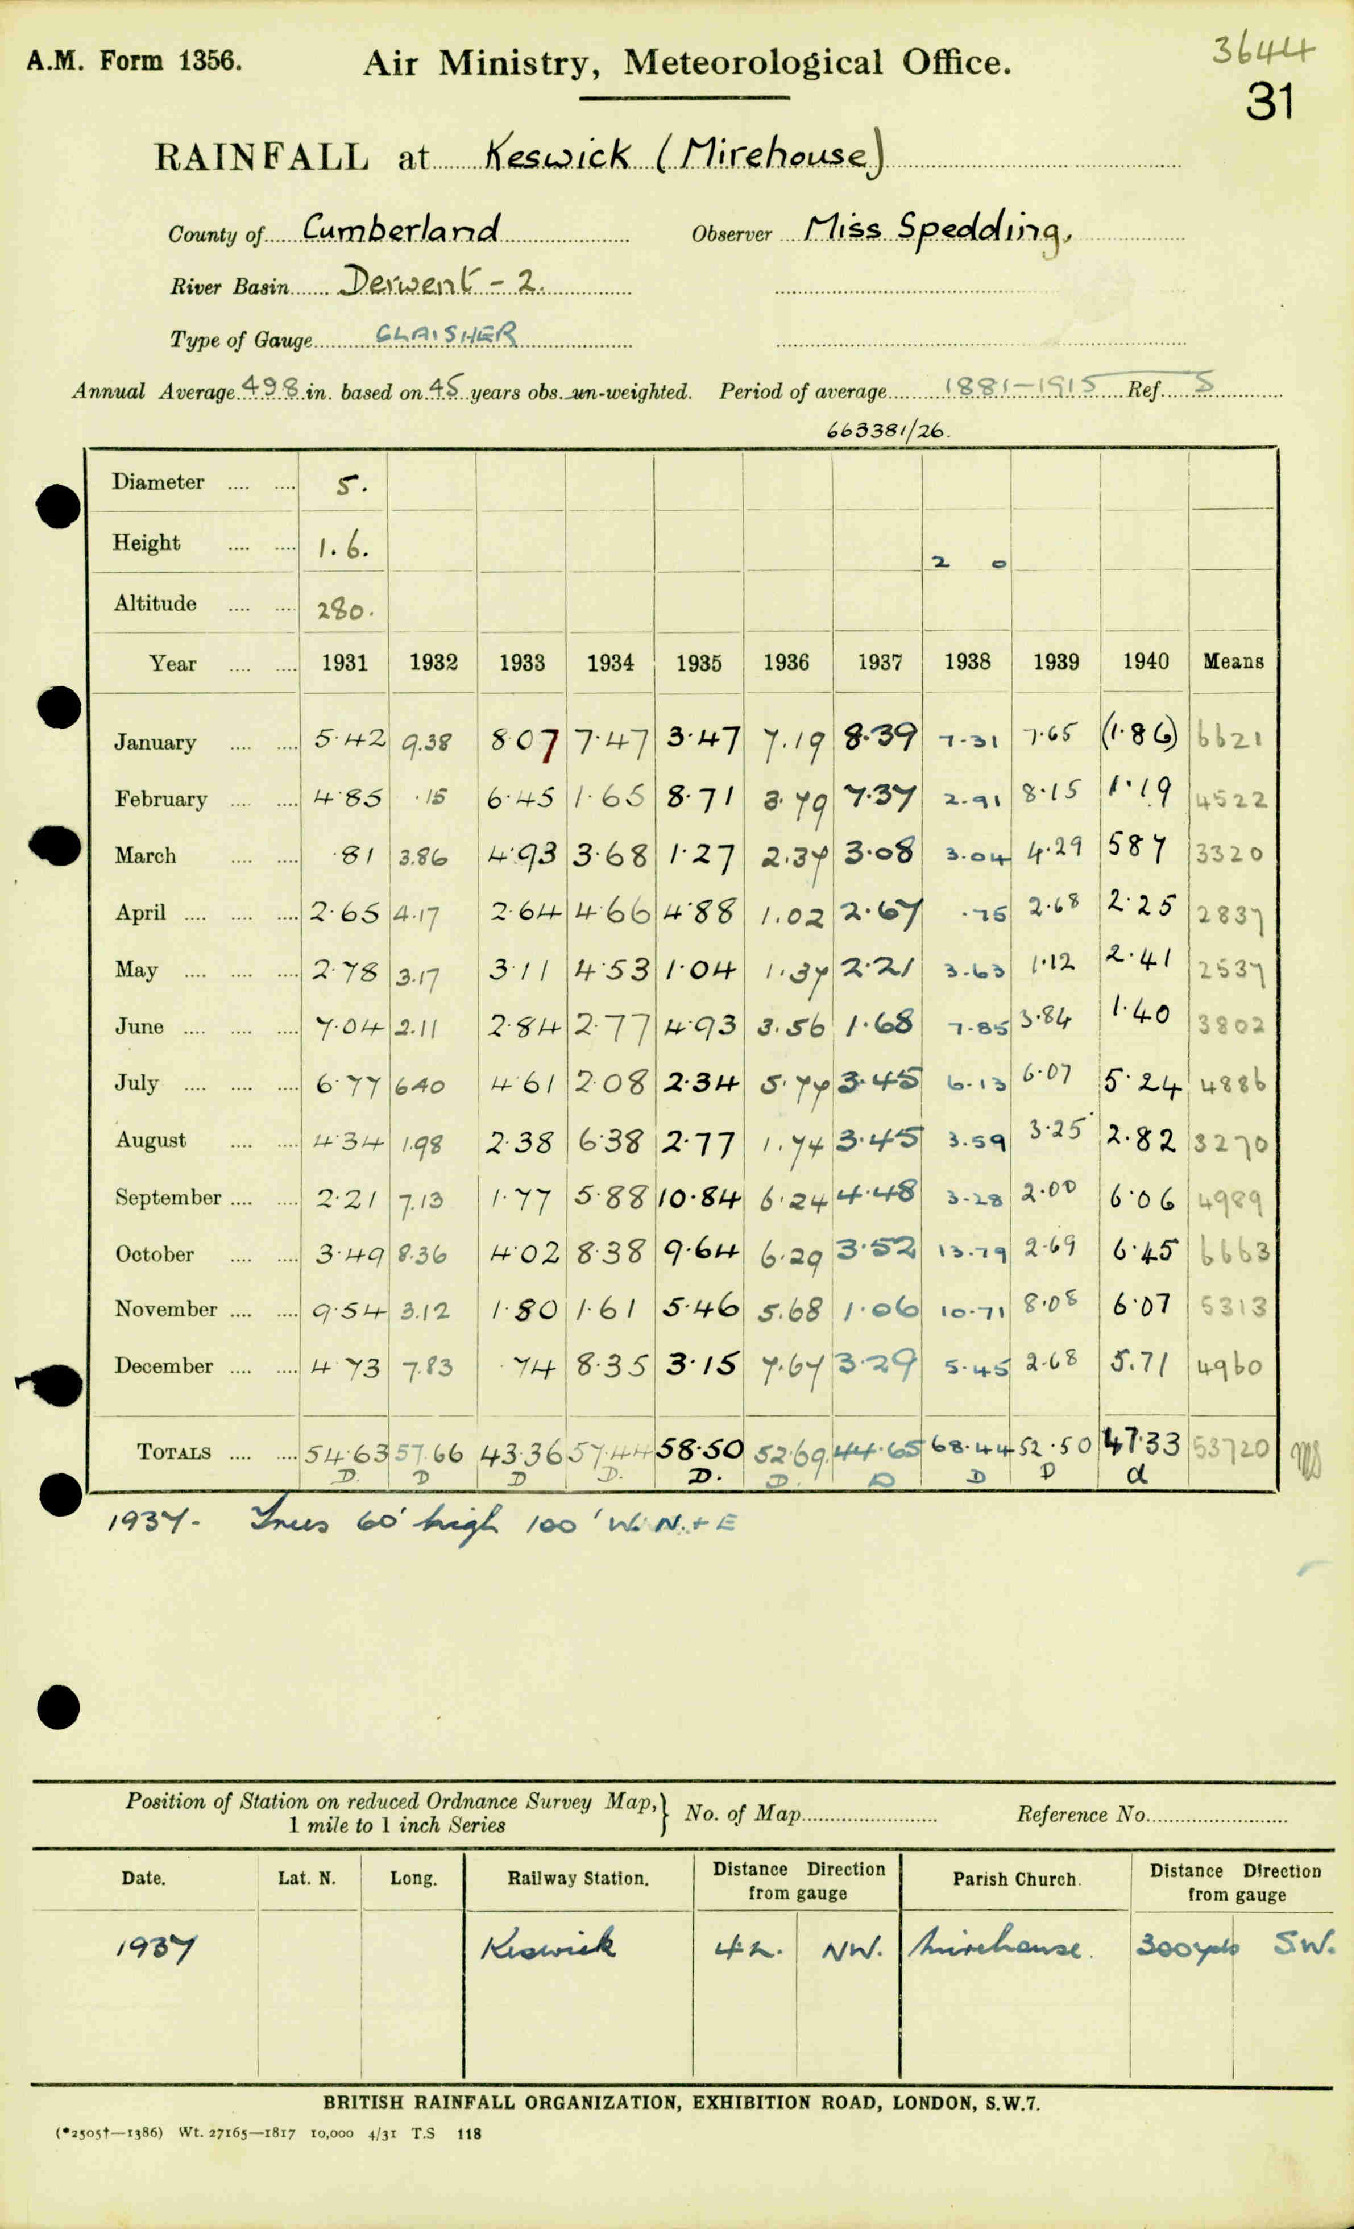 A.M. Form 1356. Air Ministry, Meteorological Office. 3644
31
RAINFALL at Keswick (Mirehouse)
County of Cumberland Observer Miss Spedding.
River Basin Derwent - 2.
Type of Gauge GLAISHER
Annual Average 49.8 in. based on 45 years obs. un-weighted. Period of average 1881-1915 Ref. S
663381/26.
Diameter .... .... 5.
Height .... .... 1.6. 2 0
Altitude .... .... 280.
Year .... .... 1931 1932 1933 1934 1935 1936 1937 1938 1939 1940 Means
January .... .... 5.42 9.38 8.07 7.47 3.47 7.19 8.39 7.31 7.65 (1.86) 6621
February .... .... 4.85 .15 6.45 1.65 8.71 3.79 7.37 2.91 8.15 1.19 4522
March .... .... .81 3.86 4.93 3.68 1.27 2.37 3.08 3.04 4.29 5.87 3320
April .... .... .... 2.65 4.17 2.64 4.66 4.88 1.02 2.67 .75 2.68 2.25 2837
May .... .... .... 2.78 3.17 3.11 4.53 1.04 1.37 2.21 3.63 1.12 2.41 2537
June .... .... .... 7.04 2.11 2.84 2.77 4.93 3.56 1.68 7.85 3.84 1.40 3802
July .... .... .... 6.77 6.40 4.61 2.08 2.34 5.77 3.45 6.13 6.07 5.24 4886
August .... .... 4.34 1.98 2.38 6.38 2.77 1.74 3.45 3.59 3.25 2.82 3270
September .... .... 2.21 7.13 1.77 5.88 10.84 6.24 4.48 3.28 2.00 6.06 4989
October .... .... 3.49 8.36 4.02 8.38 9.64 6.29 3.52 13.79 2.69 6.45 6663
November .... .... 9.54 3.12 1.80 1.61 5.46 5.68 1.06 10.71 8.08 6.07 5313
December .... .... 4.73 7.83 .74 8.35 3.15 7.67 3.29 5.45 2.68 5.71 4960
TOTALS .... .... 54.63 57.66 43.36 57.44 58.50 52.69 44.65 68.44 52.50 47.33 53720
D. D D D. D. D. D D D d
1937- Trees 60' high 100' W. N. + E
Position of Station on reduced Ordnance Survey Map, } No. of Map Reference No.
1 mile to 1 inch Series
Date. Lat. N. Long. Railway Station. Distance Direction from gauge Parish Church. Distance Direction from gauge
1937 Keswick 4 NW. Mirehouse. 300 yds S.W.
BRITISH RAINFALL ORGANIZATION, EXHIBITION ROAD, LONDON, S.W.7.
(*2505†—1386) Wt. 27165—1817 10,000 4/31 T.S 118